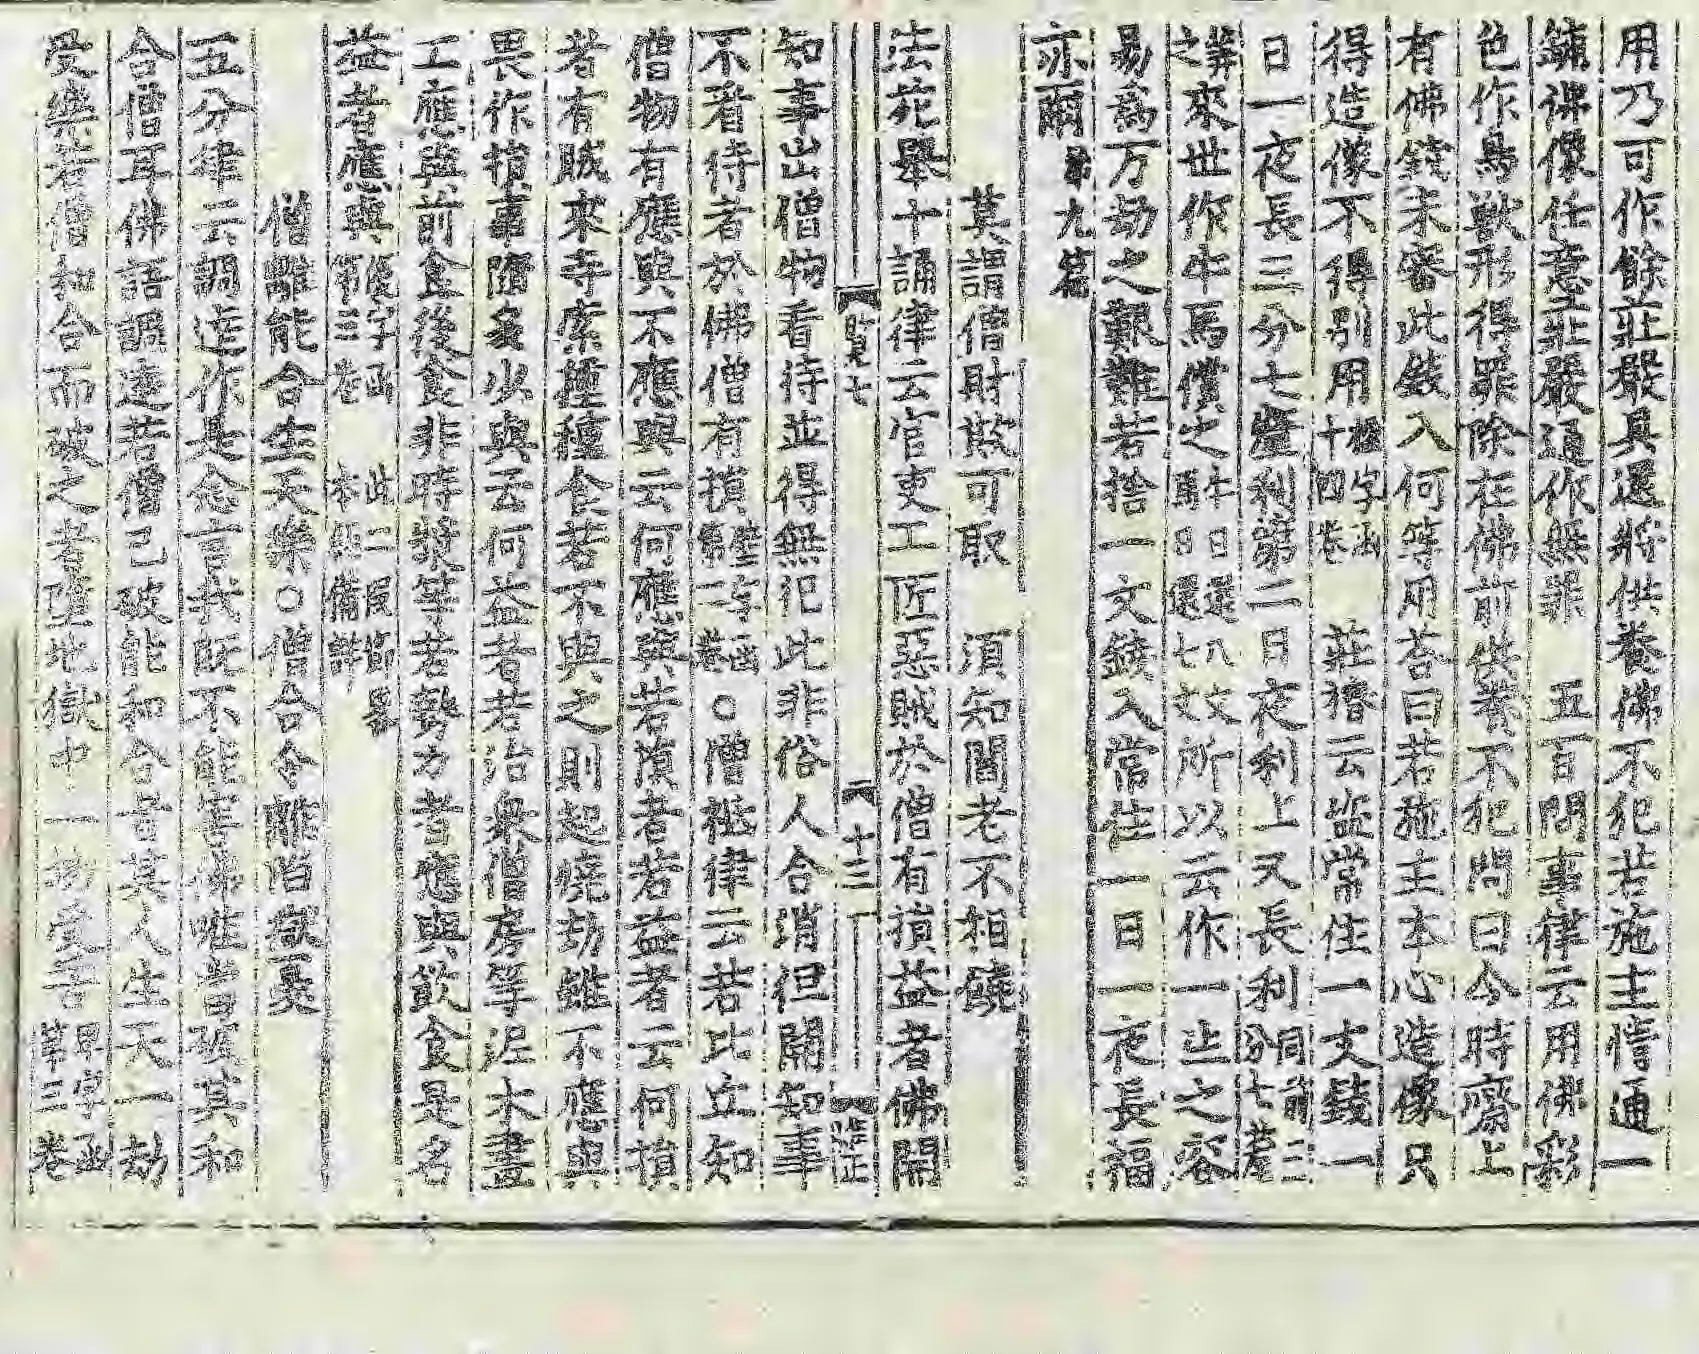 用乃可作餘莊嚴具還將供養佛不犯若施主情通一
鋪佛像任意莊嚴通作無罪　五百問事律云用佛彩
色作鳥獸形得罪除在佛前供養不犯問曰今時齋上
有佛錢未審此錢入何等用荅曰若施主本心造像只
得造像不得別用極字函十四卷　莊椿云盜常住一文錢一
日一夜長三分七釐利第二日夜利上又長利同前三分七釐
之筭來世作牛馬償之牛日還八文驢日還七文所以云作一止之容
易爲万劫之艱難若捨一文錢入常住一日一夜長福
亦爾第九篇
莫謂僧財欺可取　須知閻老不相饒
法苑舉十誦律云官吏工匠惡賊於僧有損益者佛開
賢七　十三　臨正
知事出僧物看待並得無犯此非俗人合消但開知事
不看待者於佛僧有損二卷○僧祇律云若比丘知
僧物有應與不應與云何應與若損者若益者云何損
者有賊來寺索種種食若不與之則起燒劫雖不應與
畏作損事隨多少與云何益者若治衆僧房等泥木畫
工應與前食後食非時漿等若勢力者應與飮食是名
益者應與字函三卷　此二段節畧本備詳
僧離能合生天樂○僧合令離陷獄裏
五分律云調達作是念言我旣不能害佛唯當破其和
合僧耳佛語調達若僧已破能和合者其人生天一劫
受樂若僧和合而破之者墮地獄中一劫受苦字函第三卷